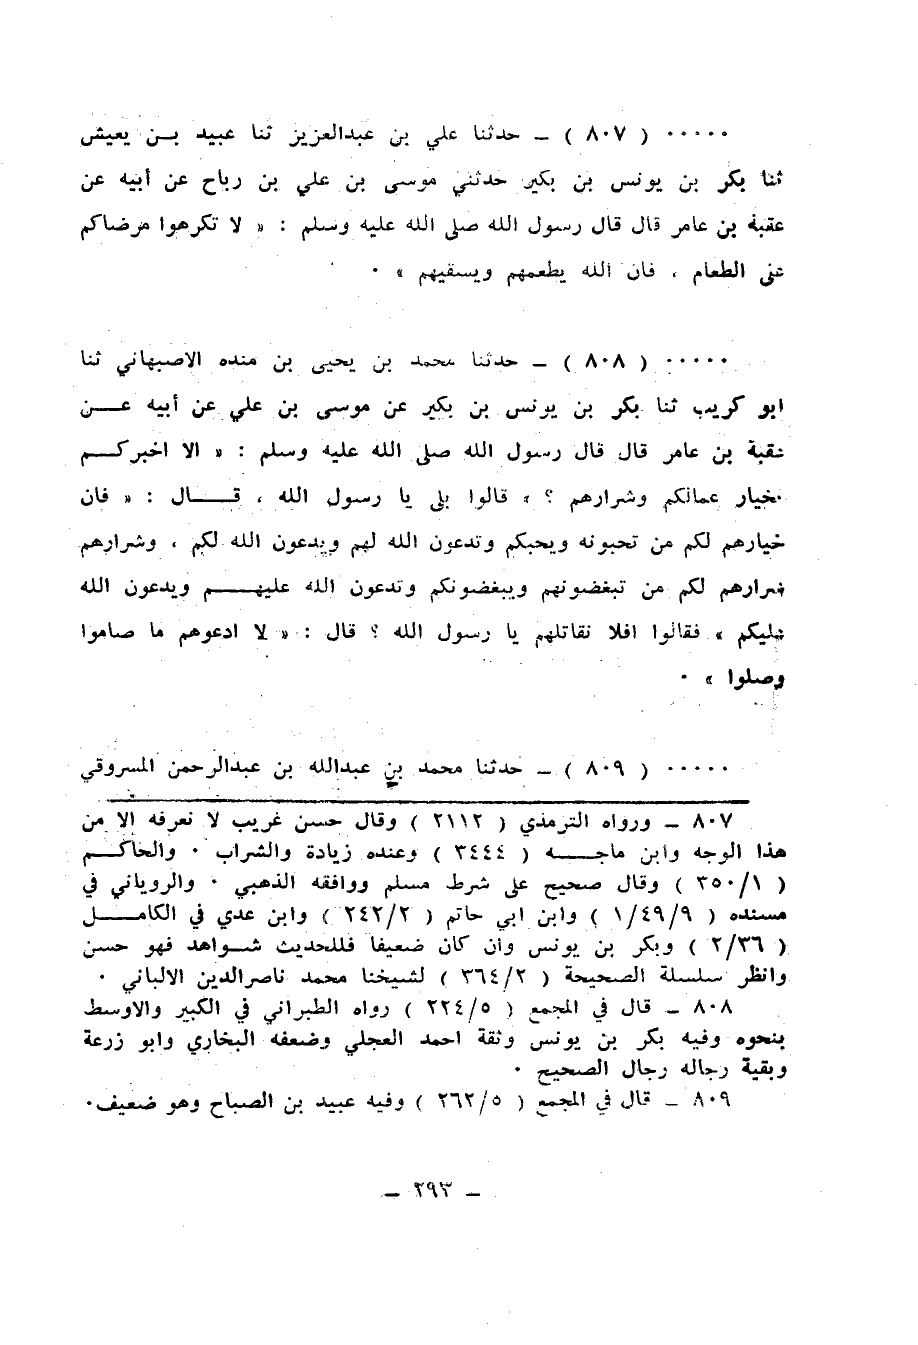 ٠٠٠٠٠ ( ٨٠٧ ) ـ حدثنا علي بن عبدالعزيز ثنا عبيد بـن يعيش
ثنا بكر بن يونس بن بكير حدثني موسى بن علي بن رباح عن أبيه عن
عقبة بن عامر قال قال رسول الله صلى الله عليه وسلم : « لا تكرهوا مرضاكم
على الطعام ، فان الله يطعمهم ويسقيهم » ٠
٠٠٠٠٠ ( ٨٠٨ ) ـ حدثنا محمد بن يحيى بن منده الاصبهاني ثنا
ابو كريب ثنا بكر بن يونس بن بكير عن موسى بن علي عن أبيه عـــن
عقبة بن عامر قال قال رسول الله صلى الله عليه وسلم : « الا اخبركـــم
بخيار عمالكم وشرارهم ؟ » قالوا بلى يا رسول الله ، قـــال : « فان
خيارهم لكم من تحبونه ويحبكم وتدعون الله لهم ويدعون الله لكم ، وشرارهم
شرارهم لكم من تبغضونهم ويبغضونكم وتدعون الله عليهـــم ويدعون الله
عليكم » فقالوا افلا نقاتلهم يا رسول الله ؟ قال : « لا ادعوهم ما صاموا
وصلوا » ٠
٠٠٠٠٠ ( ٨٠٩ ) ـ حدثنا محمد بن عبدالله بن عبدالرحمن المسروقي
٨٠٧ ـ ورواه الترمذي ( ٢١١٢ ) وقال حسن غريب لا نعرفه الا من
هذا الوجه وابن ماجـــه ( ٣٤٤٤ ) وعنده زيادة والشراب ٠ والحاكـــم
( ٣٥٠/١ ) وقال صحيح على شرط مسلم ووافقه الذهبي ٠ والروياني في
مسنده ( ١/٤٩/٩ ) وابن ابي حاتم ( ٢٤٢/٢ ) وابن عدي في الكامـــل
( ٢/٣٦ ) وبكر بن يونس وان كان ضعيفا فللحديث شـواهد فهو حسن
وانظر سلسلة الصحيحة ( ٣٦٤/٢ ) لشيخنا محمد ناصرالدين الالباني ٠
٨٠٨ ـ قال في المجمع ( ٢٢٤/٥ ) رواه الطبراني في الكبير والاوسط
بنحوه وفيه بكر بن يونس وثقة احمد العجلي وضعفه البخاري وابو زرعة
وبقية رجاله رجال الصحيح ٠
٨٠٩ ـ قال في المجمع ( ٢٦٢/٥ ) وفيه عبيد بن الصباح وهو ضعيف٠
ـ ٢٩٣ ـ